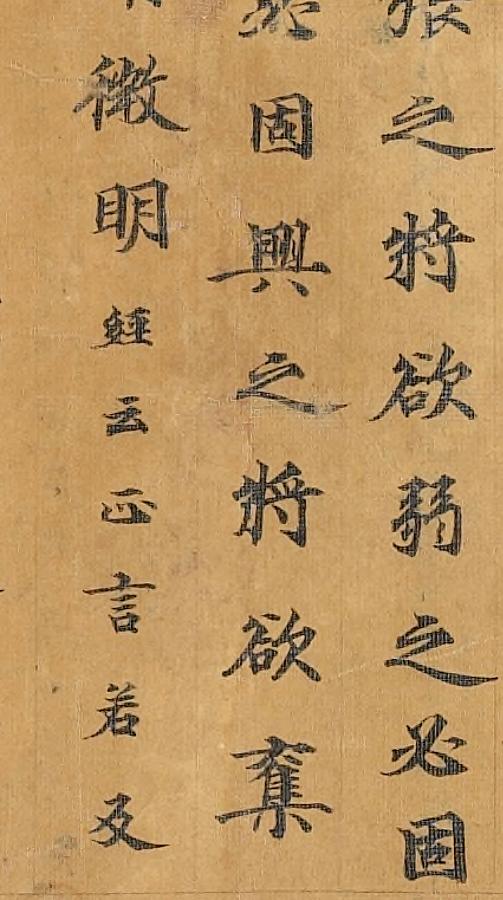 張之將欲弱之必固
必固興之將欲奪
微明經云正言若反